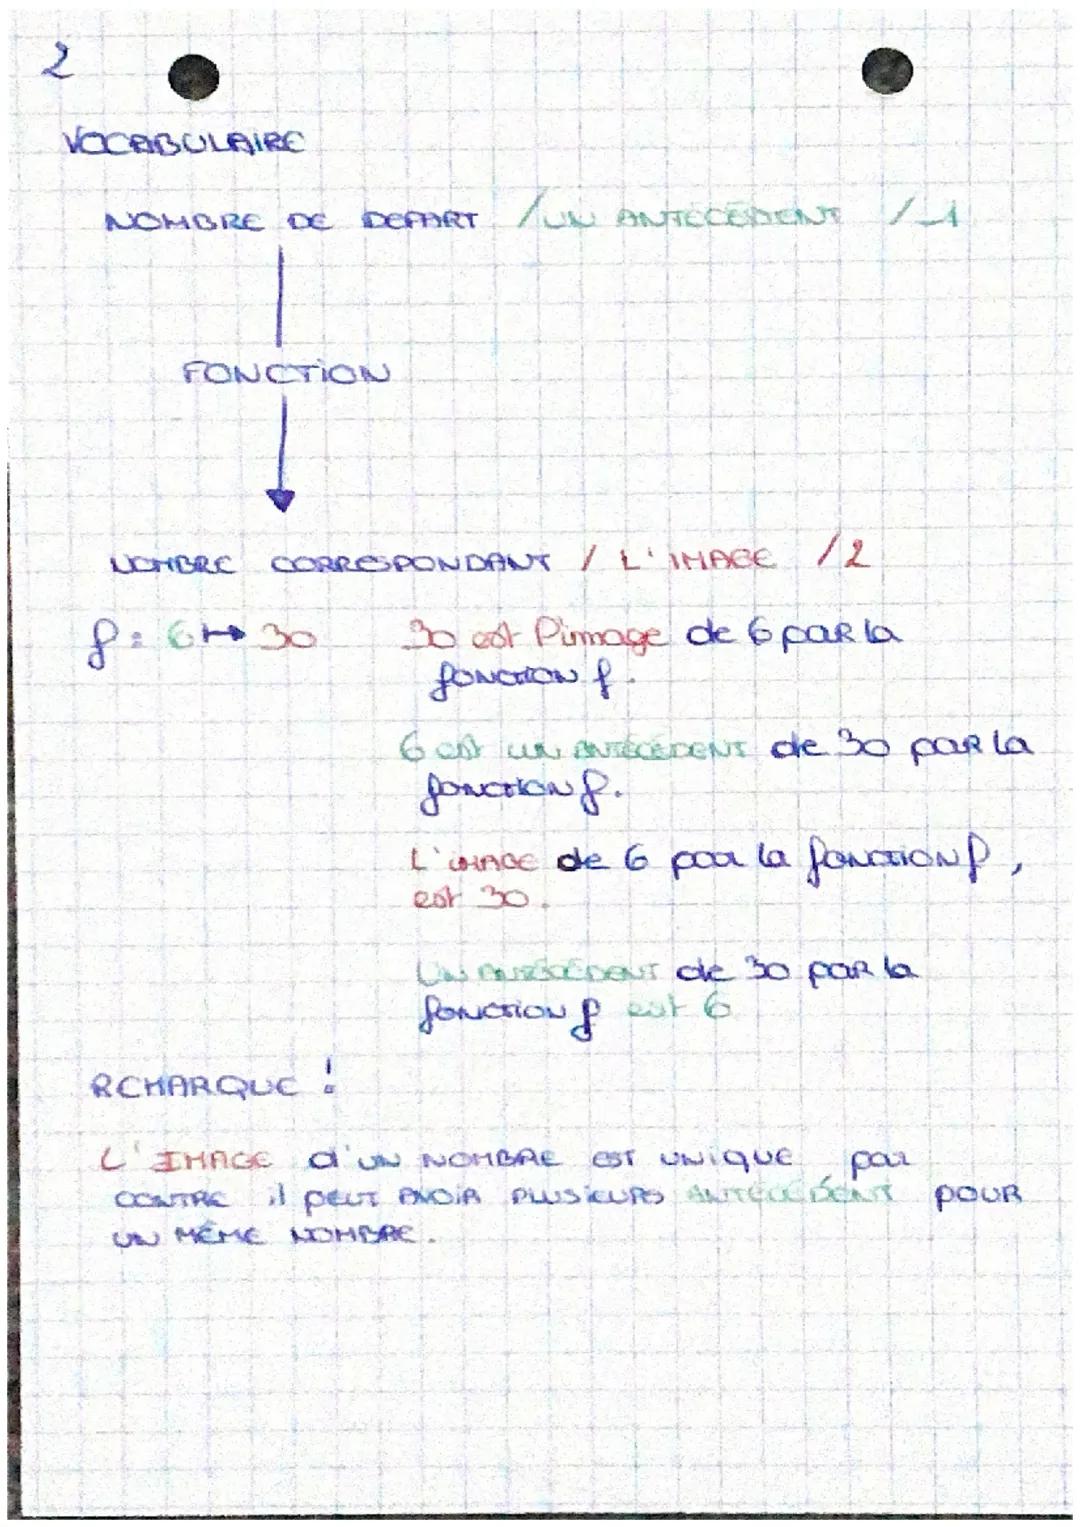 2
VOCABULAIRE
NOMBRE DE DEPART / UN ANTECÉDENT / _1
FONCTION
NOMBRE CORRESPONDANT / L'IMAGE / 2
f : 6 ↦ 30 30 est l'image de 6 par la
fonction f.
6 est un antécédent de 30 par la
fonction f.
L'image de 6 par la fonction f,
est 30.
Un antécédent de 30 par la
fonction f est 6
REMARQUE :
L'IMAGE d'un NOMBRE EST UNIQUE par
CONTRE il peut AVOIR PLUSIEURS ANTECEDENT POUR
UN MÊME NOMBRE.